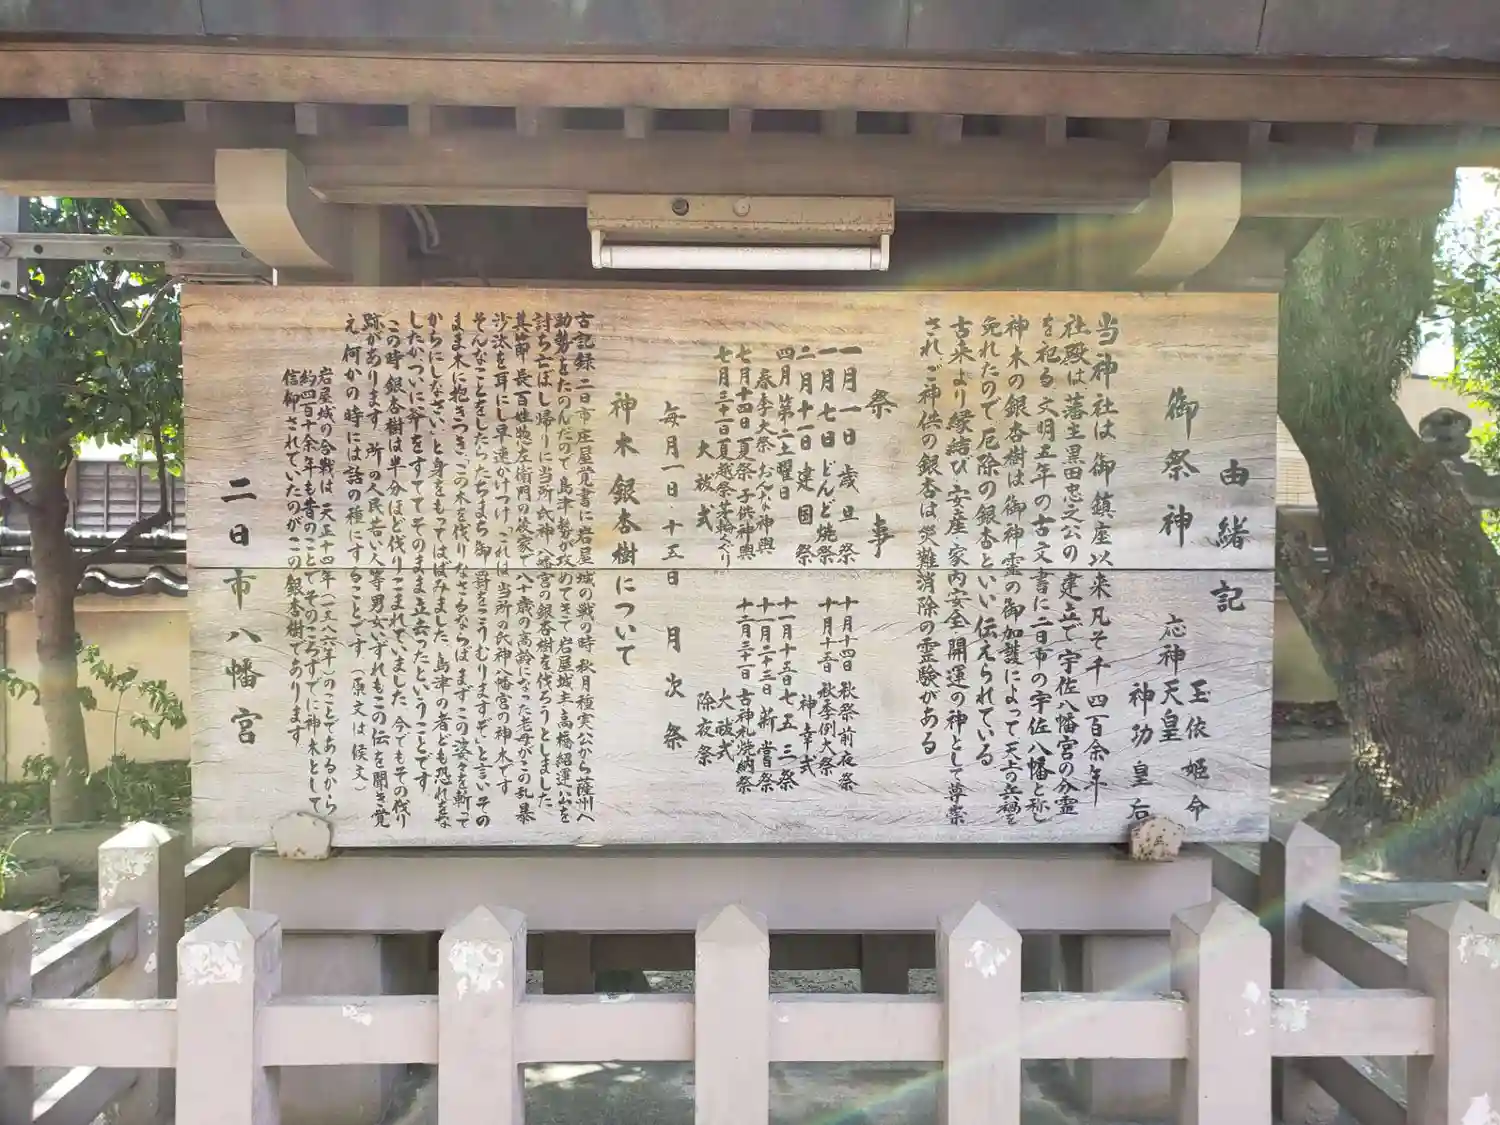 由緒記
御祭神
玉依姫命
応神天皇
神功皇后
当神社は御鎮座以来凡そ千四百余年
社殿は藩主黒田忠之公の建立で宇佐八幡宮の分霊
を祀る文明五年の古文書に二日市の宇佐八幡と称し
神木の銀杏樹は御神霊の御加護によって天上の兵禍を
免れたので厄除の銀杏といい伝えられている
古来より縁結び・安産・家内安全・開運の神として尊崇
されご神供の銀杏は災難消除の霊験がある
祭事
一月一日 歳旦祭
一月七日 どんど焼祭
二月十一日 建国祭
四月第二土曜日
春季大祭 おんな神輿
七月十四日 夏祭 子供神輿
七月三十一日 夏越祭 茅輪くぐり
大祓式
十月十四日 秋祭前夜祭
十月十五日 秋季例大祭
神幸式
十一月十五日 七五三祭
十一月二十三日 新嘗祭
十二月三十一日 古神札焼納祭
大祓式
除夜祭
毎月一日・十五日 月次祭
神木 銀杏樹について
古記録 二日市庄屋覚書に岩屋城の戦の時 秋月種実公から薩州へ
助勢をたのんだので 島津勢が攻めてきて 岩屋城主 高橋紹運公を
討ち亡ぼし帰りに当所氏神 八幡宮の銀杏樹を伐ろうとしました
其節 長百姓惣左衛門の後家で八十歳の高齢になった老母がこの乱暴
沙汰を耳にし早速かけつけ「これは当所の氏神八幡宮の神木です
そんなことをしたらたちまち御罰をこうむりますぞ」と言いその
まま木に抱きつき「この木を伐りなさるならばまずこの婆々を斬って
からにしなさい」と身をもってはばみました 島津の者とも恐れをな
したかついに斧をすててそのまま立去ったということです
この時 銀杏樹は半分ほど伐りこまれていました 今でもその伐り
跡があります 所の人民若い人等男女いずれもこの伝を聞き覚
え何かの時には話の種にすることです (原文は候文)
岩屋城の合戦は 天正十四年(一五八六年)のことであるから
約四百十余年も昔のことでそのころすでに神木として
信仰されていたのがこの銀杏樹であります
二日市八幡宮